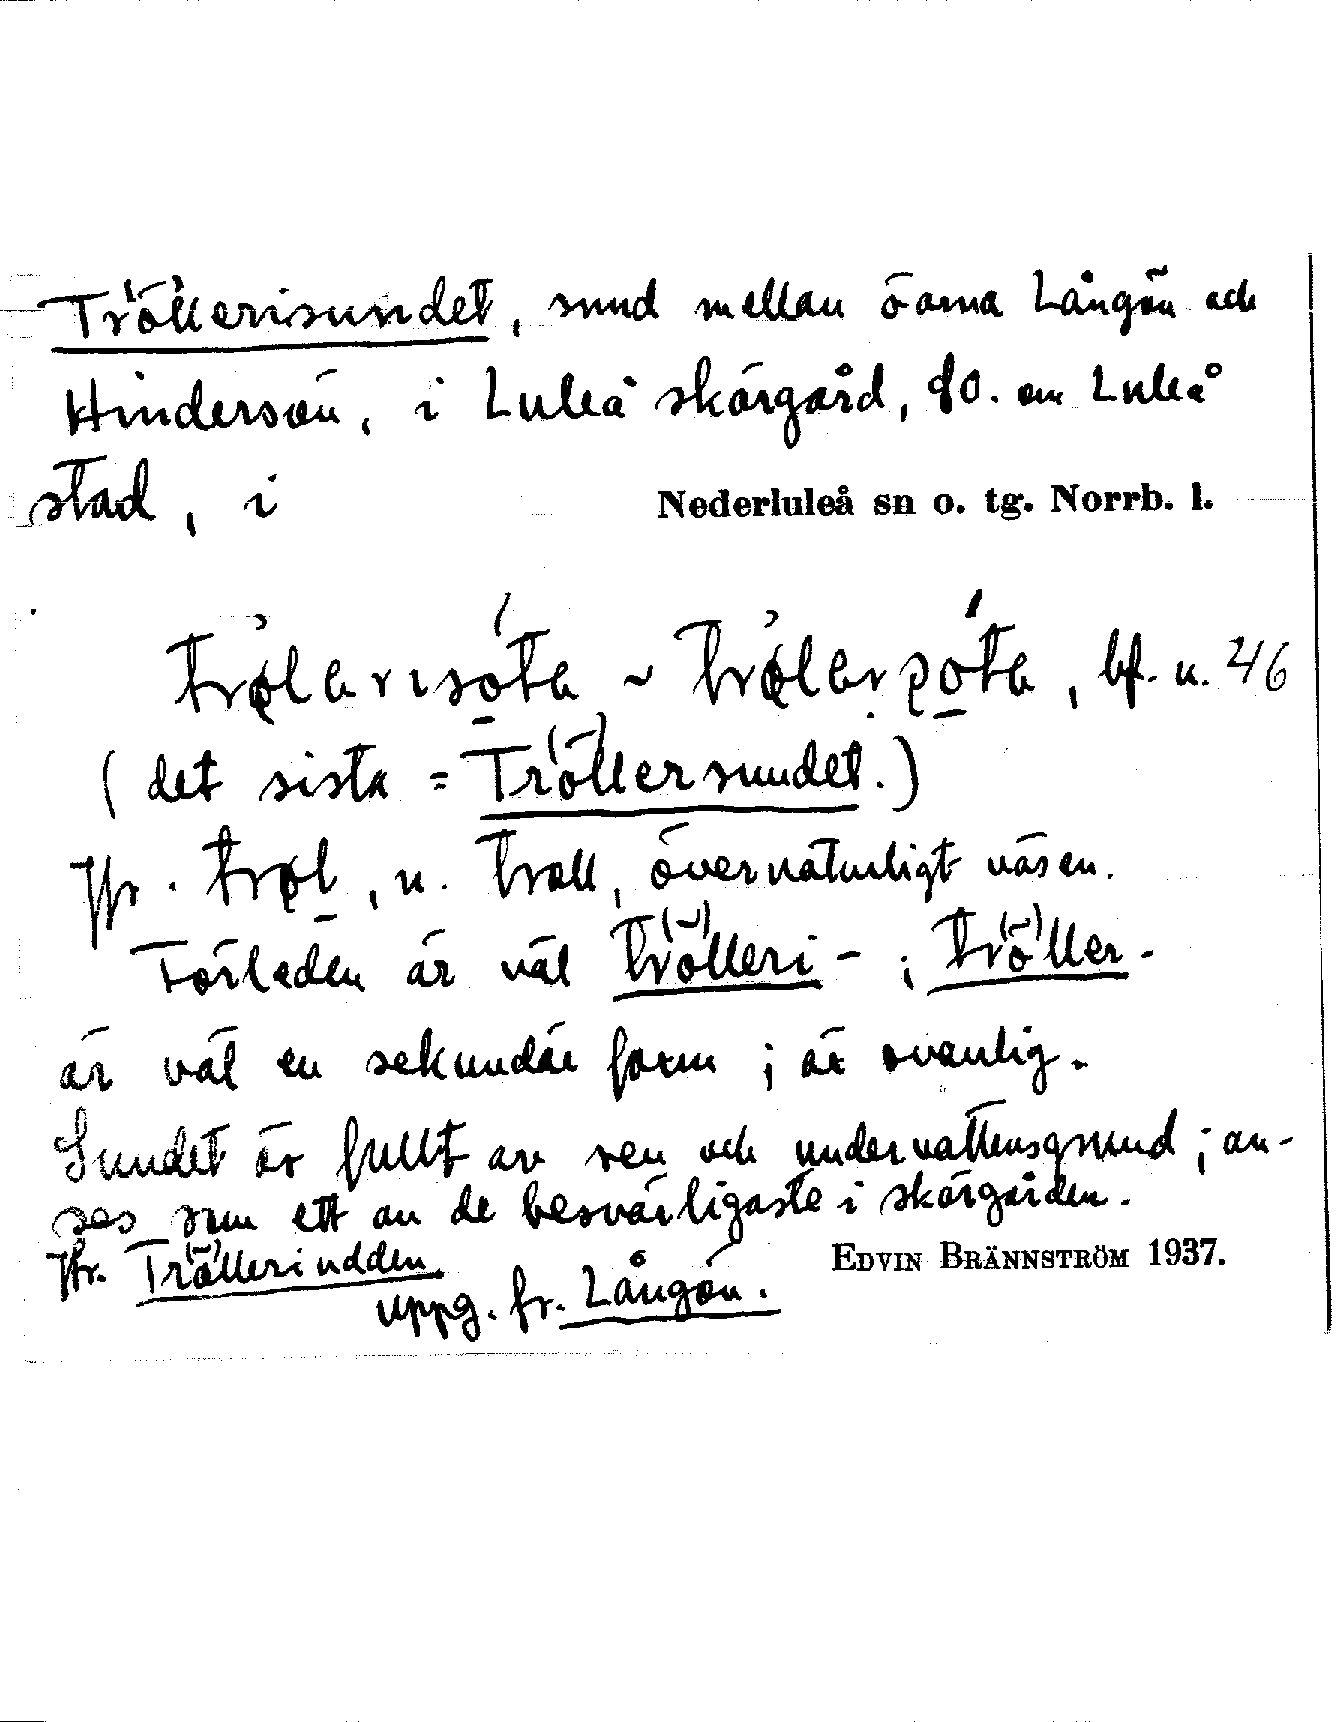 Tröllerisundet, sund mellan öarna Långön och
Hindersön, i Luleå skärgård, SO. om Luleå
stad, i Nederluleå sn o. tg. Norrb. l.
~ , bf. n. 46
(det sista = Tröllersundet.)
Jfr. , n. troll, övernaturligt väsen.
Förleden är väl trölleri- ; tröller-
är väl en sekundär form ; är ovanlig.
Sundet är fullt av rev och undervattensgrund ; an-
ses som ett av de besvärligaste i skärgården.
Jfr. Trölleriudden. EDVIN BRÄNNSTRÖM 1937.
uppg. fr. Långön.